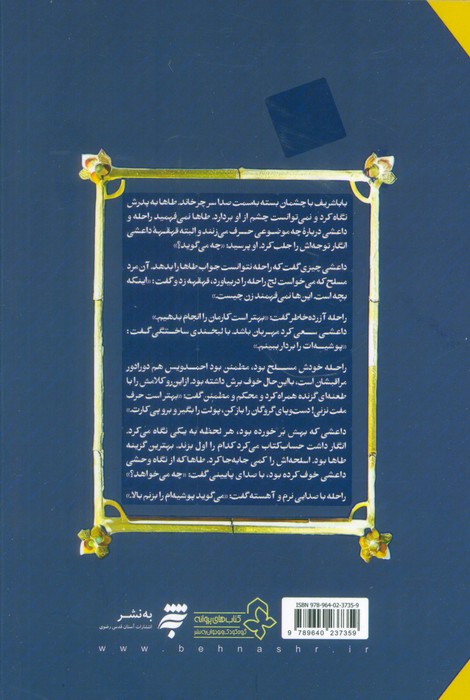 باباشریف با چشمان بسته به‌سمت صدا سر چرخاند. طاها به پدرش
نگاه کرد و نمی‌توانست چشم از او بردارد. طاها نمی‌فهمید راحله و
داعشی درباره چه موضوعی حرف می‌زنند و البته قهقهۀ داعشی
انگار توجه‌اش را جلب کرد. او پرسید: «چه می‌گوید؟»
داعشی چیزی گفت که راحله نتوانست جواب طاها را بدهد. آن مرد
مسلح که می‌خواست لج راحله را دربیاورد، قهقهه زد و گفت: «اینکه
بچه است. این‌ها نمی‌فهمند زن چیست.»
راحله آزرده‌خاطر گفت: «بهتر است کارمان را انجام بدهیم.»
داعشی سعی کرد مهربان باشد. با لبخندی ساختگی گفت:
«پوشیه‌ات را بردار ببینم.»
راحله خودش مسلح بود، مطمئن بود احمدلویس هم دورادور
مراقبشان است، بااین‌حال خوف برش داشته بود. ازاین‌رو کلامش را با
طعنه‌ای گزنده همراه کرد و محکم و مطمئن گفت: «بهتر است حرف
مفت نزنی! دست‌وپای گروگان را باز کن، پولت را بگیر و برو پی کارت.»
داعشی که بهش بر خورده بود، هر لحظه به یکی نگاه می‌کرد.
انگار داشت حساب‌کتاب می‌کرد کدام را اول بزند. بهترین گزینه
طاها بود. اسلحه‌اش را کمی جابه‌جا کرد. طاها که از نگاه وحشی
داعشی خوف کرده بود، با صدای پایینی گفت: «چه می‌خواهد؟»
راحله با صدایی نرم و آهسته گفت: «می‌گوید پوشیه‌ام را بزنم بالا.»
به‌نشر
انتشارات آستان قدس رضوی
کتاب‌های پروانه
گروه کودک و نوجوان به‌نشر
ISBN 978-964-02-3735-9
9 789640 237359
www.behnashr.ir